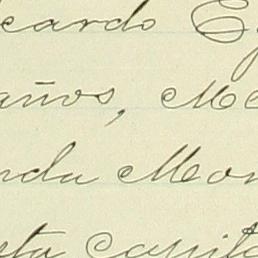 cardo E
años, Me
nda Mon
sta capita